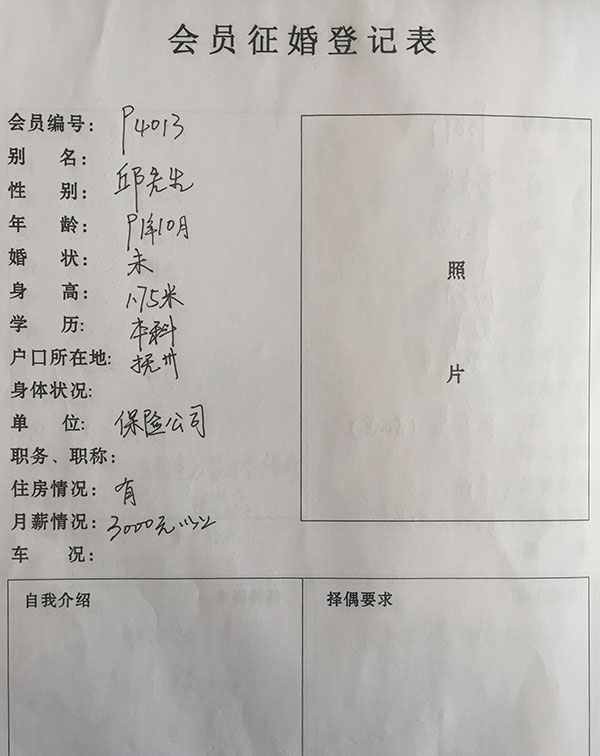 会员征婚登记表
会员编号: P4013
别 名:
性 别: 邱先生
年 龄: P1年10月
婚 状: 未
身 高: 1.75米
学 历: 本科
户口所在地: 抚州
身体状况:
单 位: 保险公司
职务、职称:
住房情况: 有
月薪情况: 3000元以上
车 况:
照
片
自我介绍
择偶要求